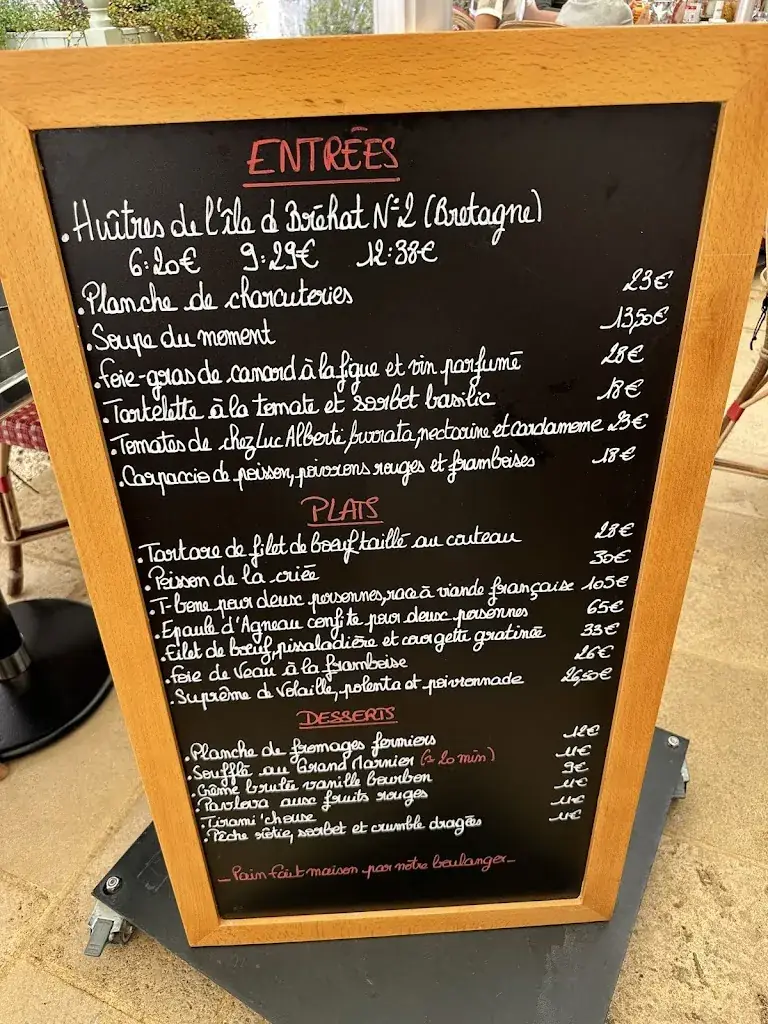 ENTRÉES
. Huîtres de l'île d Bréhat N°2 (Bretagne)
6:20€ 9:29€ 12:38€
. Planche de charcuteries 23€
. Soupe du moment 13,50€
. Foie-gras de canard à la figue et vin parfumé 28€
. Tartelette à la tomate et sorbet basilic 18€
. Tomates de chez Luc Alberti, burrata, nectarine et cardamome 23€
. Carpaccio de poisson, poivrons rouges et framboises 18€
PLATS
. Tartare de filet de boeuf taillé au couteau 28€
. Poisson de la criée 30€
. T-bone pour deux personnes, race à viande française 105€
. Epaule d'Agneau confite pour deux personnes 65€
. Filet de boeuf, pissaladière et courgette gratinée 33€
. Foie de Veau à la framboise 26€
. Suprême de Volaille, polenta et poivronnade 26,50€
DESSERTS
. Planche de fromages fermiers 12€
. Soufflé au Grand Marnier (± 20 min) 11€
. Crème brulée vanille bourbon 9€
. Pavlova aux fruits rouges 11€
. Tirami'chouse 11€
. Pêche rôtie, sorbet et crumble dragées 11€
_ Pain fait maison par nôtre boulanger _